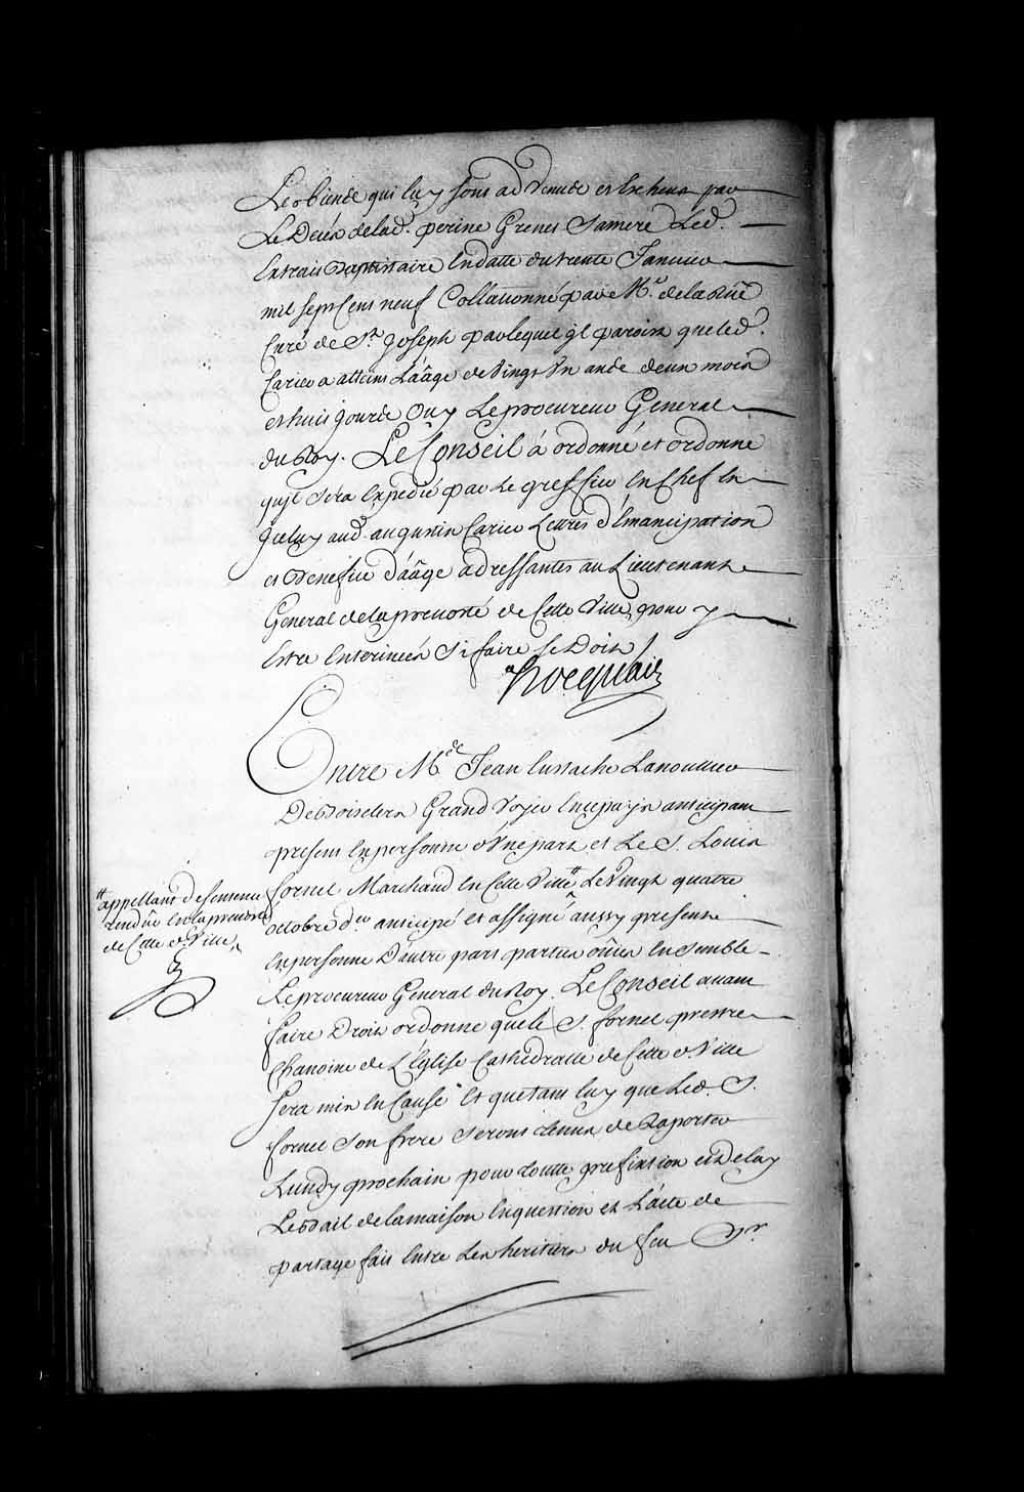 Les biens qui luy sont advenus et Escheus par
Le Decés de lad. perine Grenet Sa mere Led.
Extrait Baptistaire En datte du trente Janvier
mil sept Cens neuf Collationné par Mr. de la Rüe
Curé de St. Joseph par lequel il paroist que led.
Carier a atteint L'aâge de Vingt Un ans deux mois
et huit jours Ouy Le procureur General
du Roy. Le Conseil a ordonné et ordonne
qu'jl sera Expedié par Le greffier En Chef En
Jceluy aud. augustin Carier Lettres d'Emancipation
et Benefice d'aâge adressantes au Lieutenant
General de la prevosté de Cette Ville pour y
Estre Enterinées Si faire Se Doit
hocquart
Entre Me. Jean Eustache Lanoullier
De Boisclerc Grand Voyer En ce pays anticipant
present En personne d'Une part et Le S. Louis
fornel Marchand En Cette Ville # Le Vingt quatre
# appellant de sentence
rendüe En la prevosté
de Cette d. Ville
octobre d.er anticipé et assigné aussy present
En personne D'autre part parties oüies Ensemble
Le procureur General du Roy. Le Conseil avant
faire Droit ordonne que le S. fornel prestre
Chanoine de L'Eglise Cathedralle de Cette d. Ville
Sera mis En Cause Et que tant luy que Led. S.
fornel Son frere Seront tenus de Raporter
Lundy prochain pour toutte prefixtion et Delay
Le Bail de la maison En question et L'acte de
partage fait Entre Les heritiers du feu Sr.